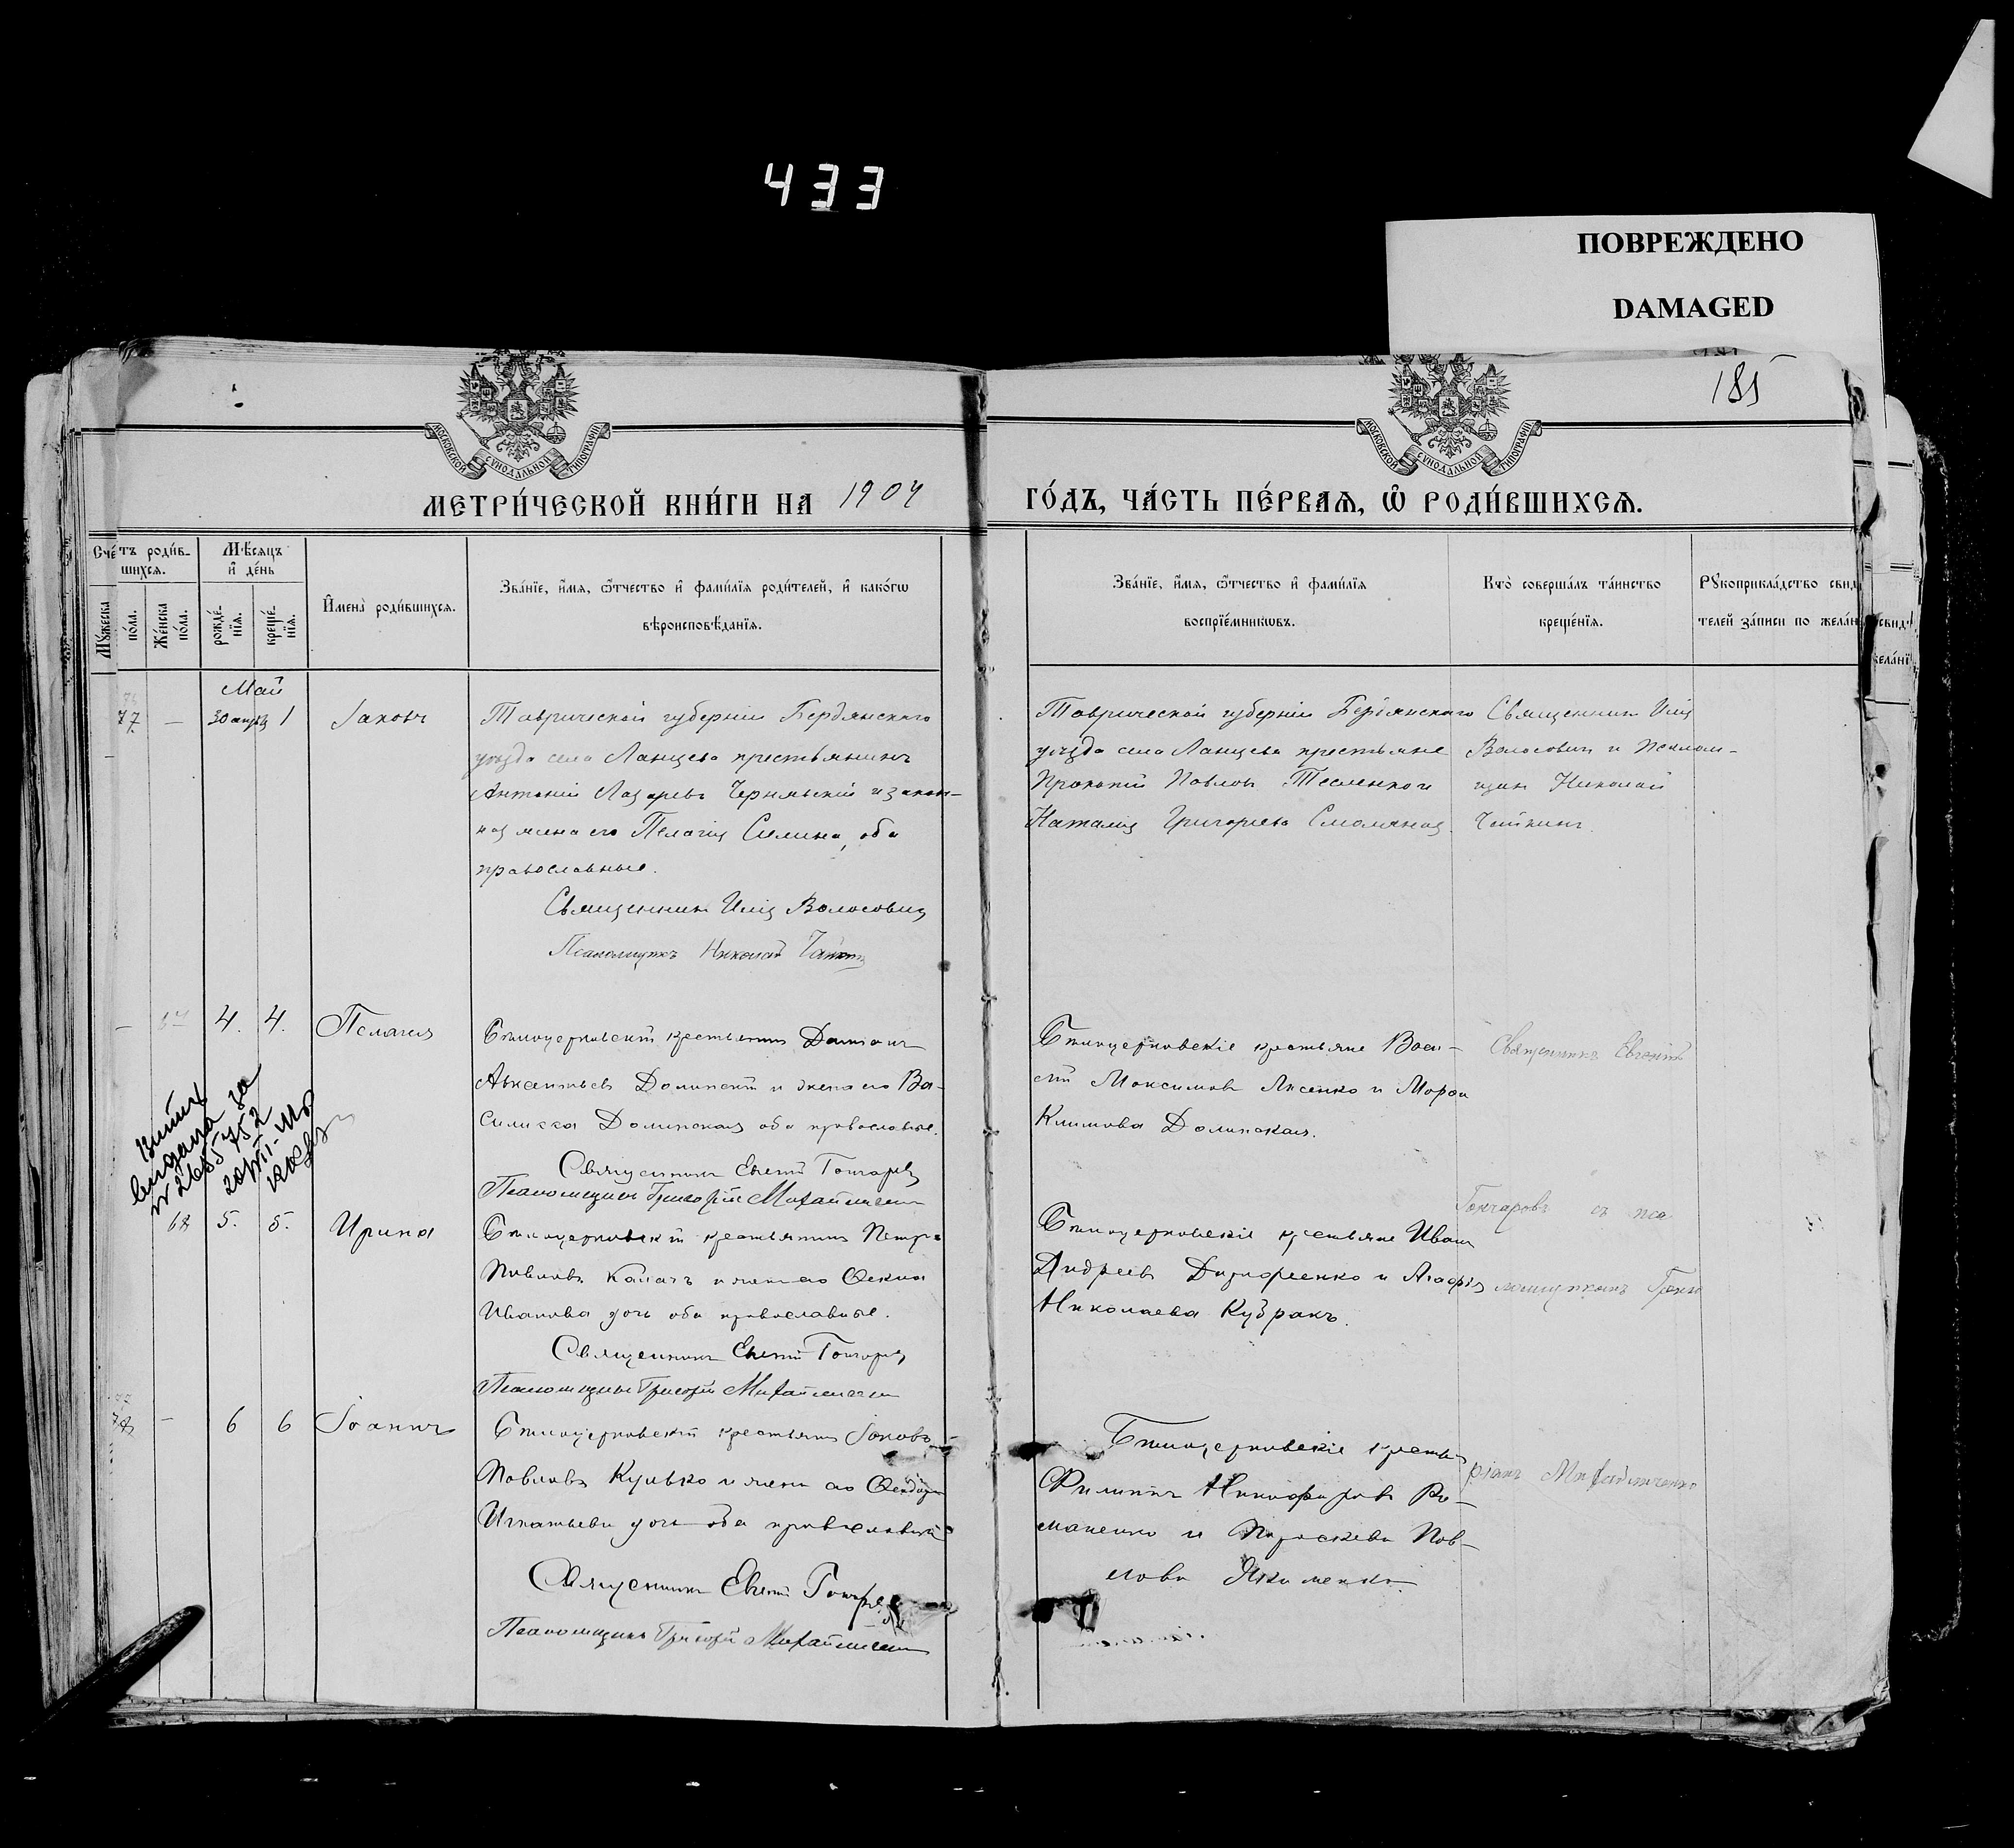 433
ПОВРЕЖДЕНО
DAMAGED
185
МОСКОВСКОЙ СѴНОДАЛЬНОЙ ТИПОГРАФІИ
МОСКОВСКОЙ СѴНОДАЛЬНОЙ ТИПОГРАФІИ
МЕТРИ́ЧЕСКОЙ КНИ́ГИ НА 1904
ГО́ДЪ, ЧА́СТЬ ПЕ́РВАѦ, Ѽ РОДИ́ВШИХСѦ.
Сче́тъ роди́в-
шихсѧ.
Мꙋжеска
по́ла.
Же́нска
по́ла.
Мѣ́сѧцъ
и҆ де́нь
рожде́-
нїѧ.
креще́-
нїѧ.
И҆мена̀ роди́вшихсѧ.
Зва́нїе, и҆́мѧ, ѻ҆́тчество и҆ фами́лїѧ роди́телей, и҆ како́гѡ
вѣроисповѣ́данїѧ.
Зва́нїе, и҆́мѧ, ѻ҆́тчество и҆ фами́лїѧ
воспрїе́мникѡвъ.
Кто̀ соверша́лъ та́инство
креще́нїѧ.
Рꙋкоприкла́дство свид
телей за́писи по жела́н
Май
77 — 30 апрѣ 1 Іаковъ
Таврической губерніи Бердянскаго
уѣзда села Ланцева крестьянинъ
Антоній Лазаревъ Чернявскій и закон-
ная жена его Пелагія Силина, оба
православные.
Священникъ Илія Волосовичъ
Псаломщикъ Николай
Таврической губерніи Бердянскаго
уѣзда села Ланцева крестьяне
Прокопій Павловъ Тесленко и
Наталія Григорьева Смоляная.
Священникъ Илія
Волосовичъ и Псалом-
щикъ Николай
— 67 4. 4. Пелагія
Бѣлоцерковскій крестьянинъ Даміанъ
Авксентьевъ Долинскій и жена его Ва-
силисса Долинская оба православные.
Священникъ Евгеній Гончаровъ
Псаломщикъ Григорій Михайличенко
Бѣлоцерковскіе крестьяне Васи-
лій Максимовъ Лисенко и Марѳа
Климова Долинская.
Священникъ Евгеній
№ 265752
68 5. 5. Ирина
Бѣлоцерковскій крестьянинъ Петръ
Павловъ Калачъ и жена его Ѳекла
Иванова дочь оба православные.
Священникъ Евгеній Гончаровъ
Псаломщикъ Григорій Михайличенко
Бѣлоцерковскіе крестьяне Иванъ
Андреевъ и Агафія
Николаева Кудракъ.
Гончаровъ съ пса
ломщикомъ Григо
78 — 6 6 Іоаннъ
Бѣлоцерковскій крестьянинъ Іаковъ
Павловъ Кулько и жена его Ѳеодосія
Игнатьева дочь оба православные
Священникъ Евгеній Гончаровъ
Псаломщикъ Григорій Михайличенко
Бѣлоцерковскіе крестьяне
Филиппъ Никифоровъ Ро-
маненко и Параскева Пав-
лова Якименко.
ріемъ Михайличенко